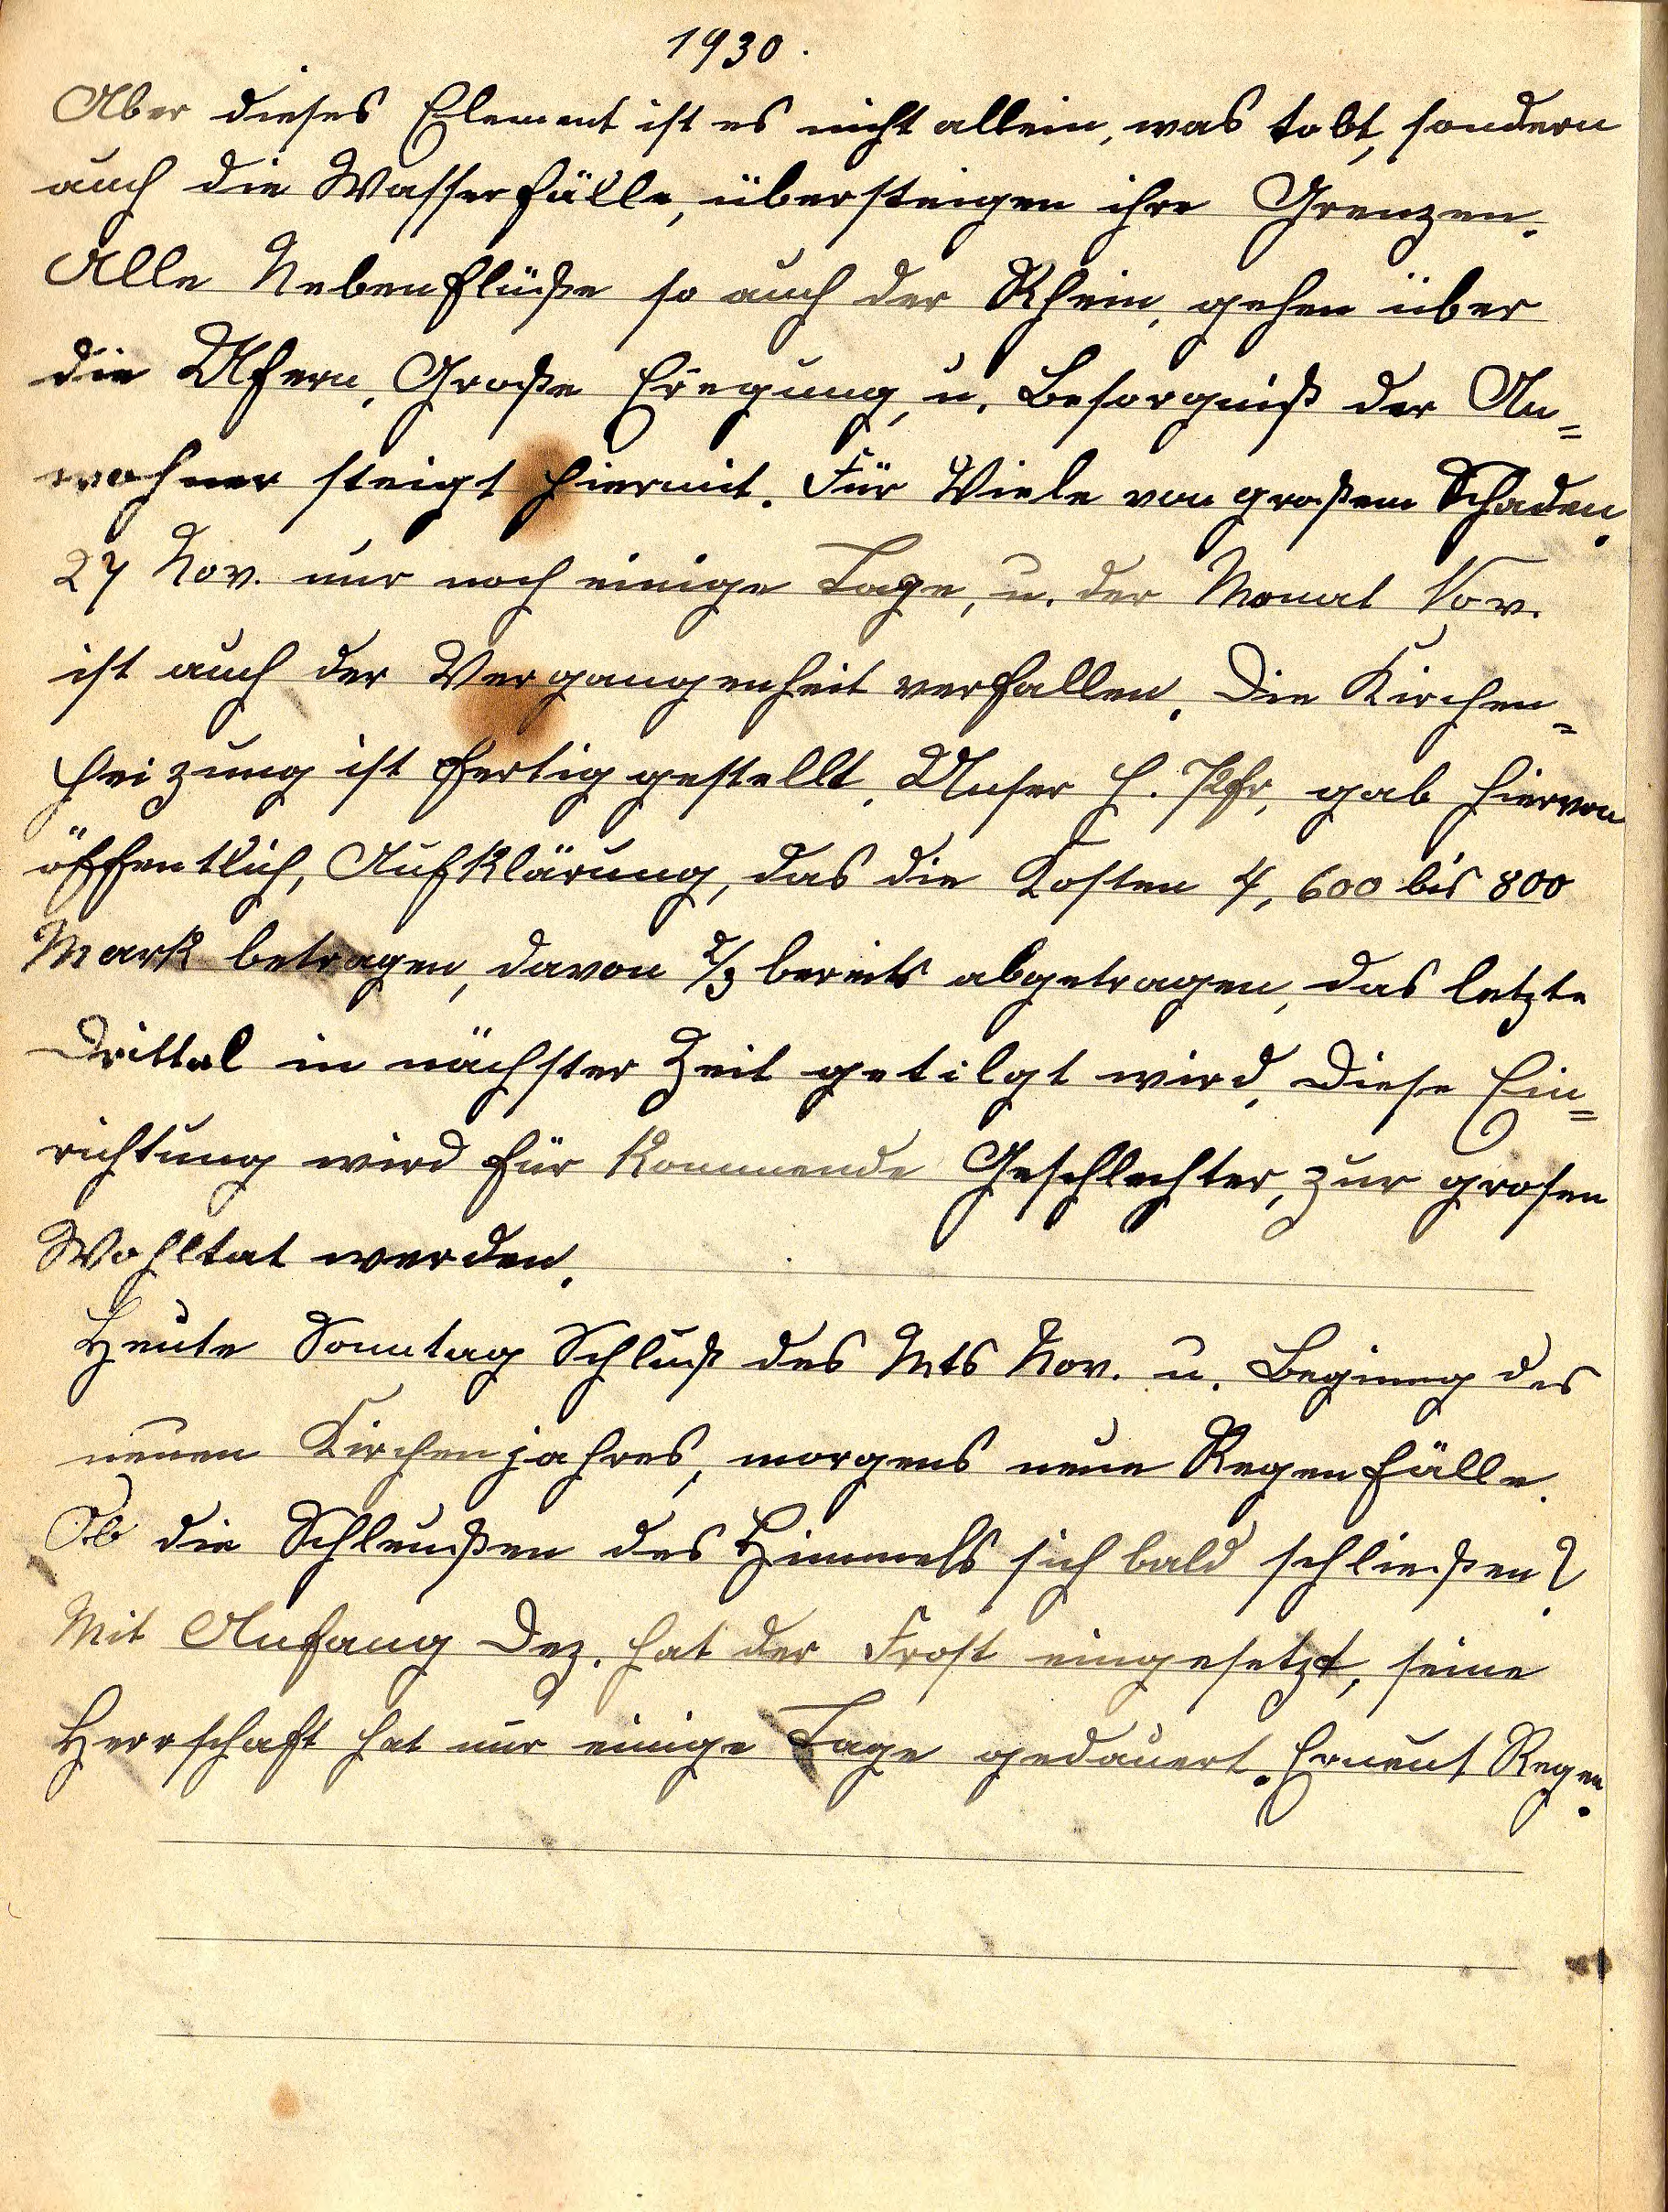 1930.
Aber dieses Element ist es nicht allein, was tobt, sondern
auch die Wasserfälle, übersteigen ihre Grenzen.
Alle Nebenflüße so auch der Rhein, gehen über
die Ufern, Große Eregung, u. Besorgniß der An=
wohner steigt hiermit. Für Viele von großem Schaden.
27 Nov. nur noch einige Tage, u. der Monat Nov.
ist auch der Vergangenheit verfallen. Die Kirchen=
heizung ist fertig gestellt. Unser H. Pfr, gab hiervon
öffentlich, Aufklärung, das die Kosten 4, 600 bis 800
Mark betragen, davon 2/3 bereits abgetragen, das letzte
Drittel in nächster Zeit getilgt wird, Diese Ein=
richtung wird für kommende Geschlechter, zur grosen
Wohltat werden.
Heute Sonntag Schluß des Mts Nov. u. Beginng des
neuen Kirchenjahres, morgens neue Regenfälle.
Ob die Schleußen des Himmels sich bald schließen?
Mit Anfang Dez. hat der Frost eingesetzt, seine
Herrschaft hat nur einige Tage gedauert. Erneut Regen.